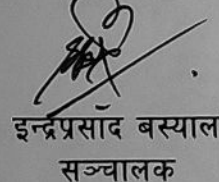 इन्द्रप्रसाँद बस्याल
सञ्चालक